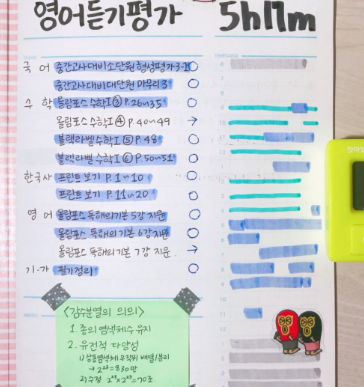 영어듣기평가 5h17m
국어 중간고사대비 소단원 형성평가 3-2
중간고사대비 대단원 마무리 3
수학 올림포스 수학I ③ P.26~35
올림포스 수학I ④ P.40~49
블랙라벨 수학I ⑤ P.48
블랙라벨 수학I ⑥ P.50~51
한국사 프린트 보기 P.1~10
프린트 보기 P.11~20
영어 올림포스 독해의 기본 5강 지문
올림포스 독해의 기본 6강 지문
올림포스 독해의 기본 7강 지문
기·가 필기정리
<감수분열의 의의>
1. 종의 염색체수 유지
2. 유전적 다양성